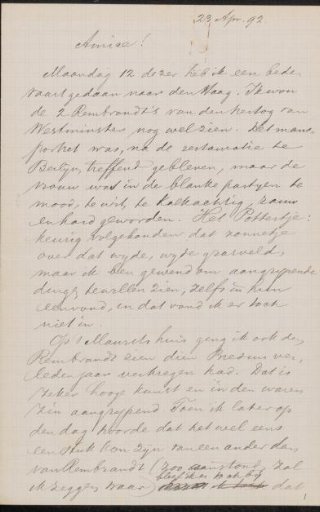 23 Apr. 92
Amice!
Maandag 12 dezer heb ik een bede-
vaart gedaan naar den Haag. Ik won
de 2 Rembrandt's van den hertog van
Westminster nog wel zien. Het mans-
portret was, na de restauratie te
Berlyn, treffend gebleven, maar de
vrouw was in de blanke partyen te
mooi, te wit, te kalkachtig, rauw
en hard geworden. Het Pottertje:
keurig volgehouden dat zonnetje
over dat wyde, wyde grasveld,
maar ik ben gewend om aangrypende
dingen te willen zien, zelfs in hun
eenvoud, en dat vond ik er toch
niet in.
Op 't Mauritshuis ging ik ook de
Rembrandt zien dien Bredius ver-
leden jaar verkregen had. Dat is
zeker hooge kunst en in den waren
zin aangrypend. Toen ik later op
den dag hoorde dat het wel eens
een stuk kon zyn van een ander dan
van Rembrandt (zoo aanstonds zal
ik zeggen waar) bleef ik er toch by
dat